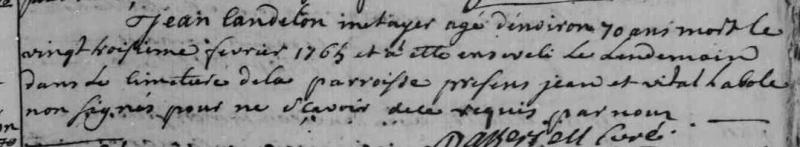 jean Candelon metayer agé denviron 70 ans mort le
vingt troisieme fevrier 1765 et a eté enseveli le Lendemain
dans le Cimetiere dela parroisse presens jean et vital Labole
non signés pour ne sçavoir dece requis par nous
Curé